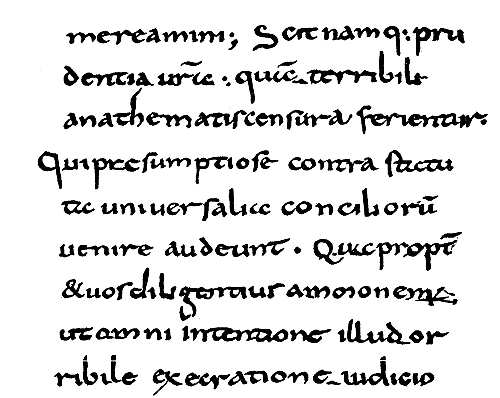 mereamini; Scit namq: pru
dentia ur̄ę. quię̄ terribile
anathematis censura feriuntur.
Qui pręsumptiose contra statu
ta universaliū conciliorū
uenire audeunt. Quę propt̄
& uos diligentius ammonem;
ut omni intentione illud or
ribile execratione iudicio